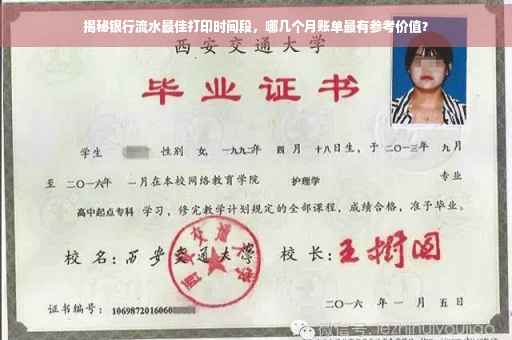 揭秘银行流水最佳打印时间段，哪几个月账单最有参考价值？
西安交通大学
毕业证书
学生 性别 女，一九九二年 四 月 十八日生，于二〇一三年 九月
至 二〇一六年 一月在本校网络教育学院 护理学 专业
高中起点专科 学习，修完教学计划规定的全部课程，成绩合格，准予毕业。
校 名：西安交通大学 校 长：王树国
西安交通大学
证书编号：1069872016060
二〇一六 年 一 月 五 日
微信号: jezhihuiyoujiao